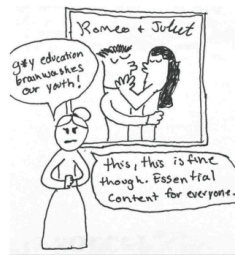 Romeo + Juliet
g*y education
brainwashes
our youth!
this, this is fine
though. Essential
Content for everyone.